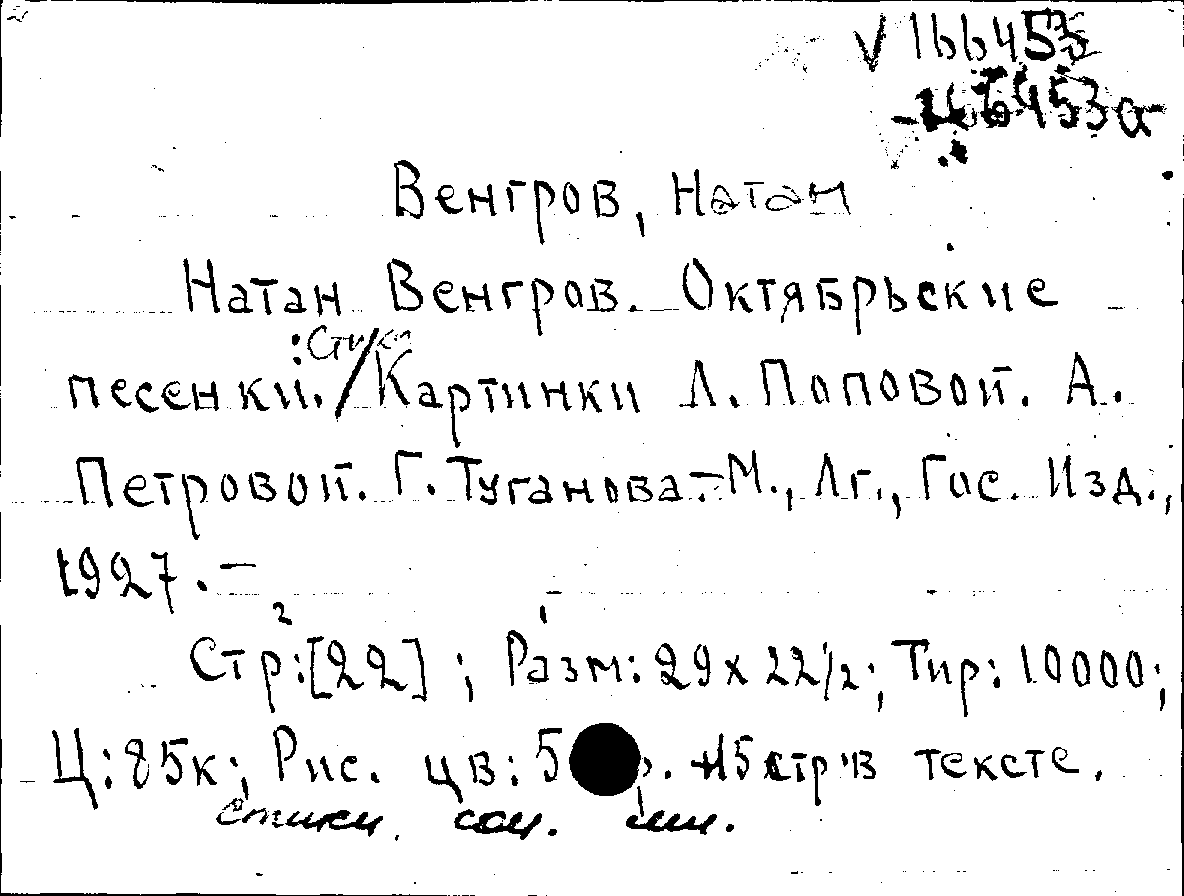 V 166453
166453а
Венгров, Натан
Натан Венгров. Октябрьские
: Стихи
песенки. / Картинки Л. Поповой. А.
Петровой. Г. Туганова. - М., Лг., Гос. Изд.,
1927. -
2
Стр: [22] ; Разм: 29 х 22 1/2; Тир: 10000;
Ц: 85к; Рис. цв: 5 15 стр в тексте.
стихи. сов.